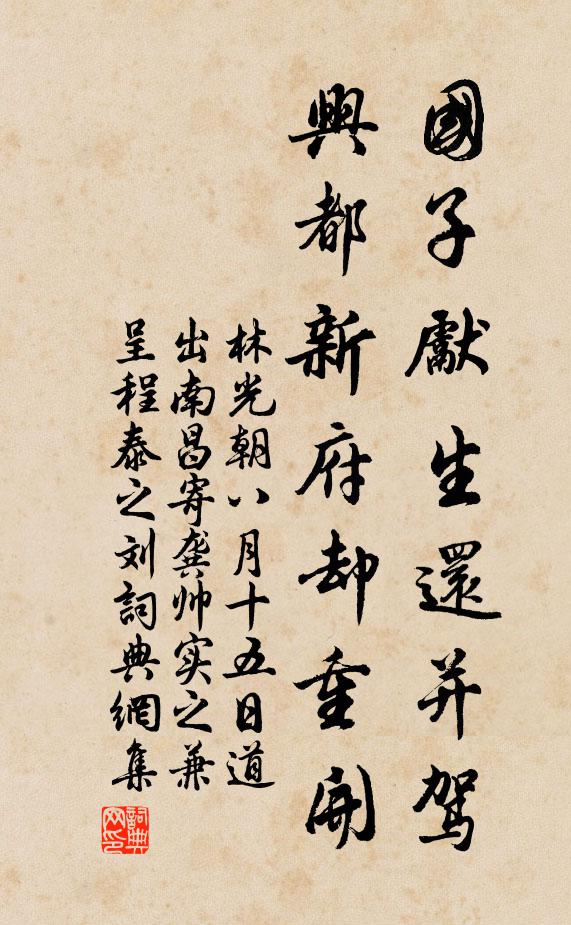 國子獻生還并駕
興都新府却重開
林光朝八月十五日道
出南昌寄龚帅实之兼
呈程泰之刘詞典網集
詞典网印